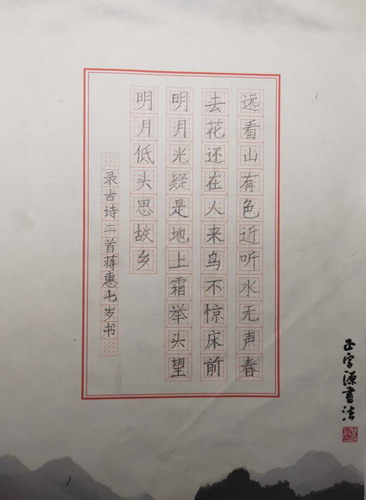 远看山有色近听水无声春
去花还在人来鸟不惊床前
明月光疑是地上霜举头望
明月低头思故乡
录古诗二首蒋惠七岁书
正字源书法